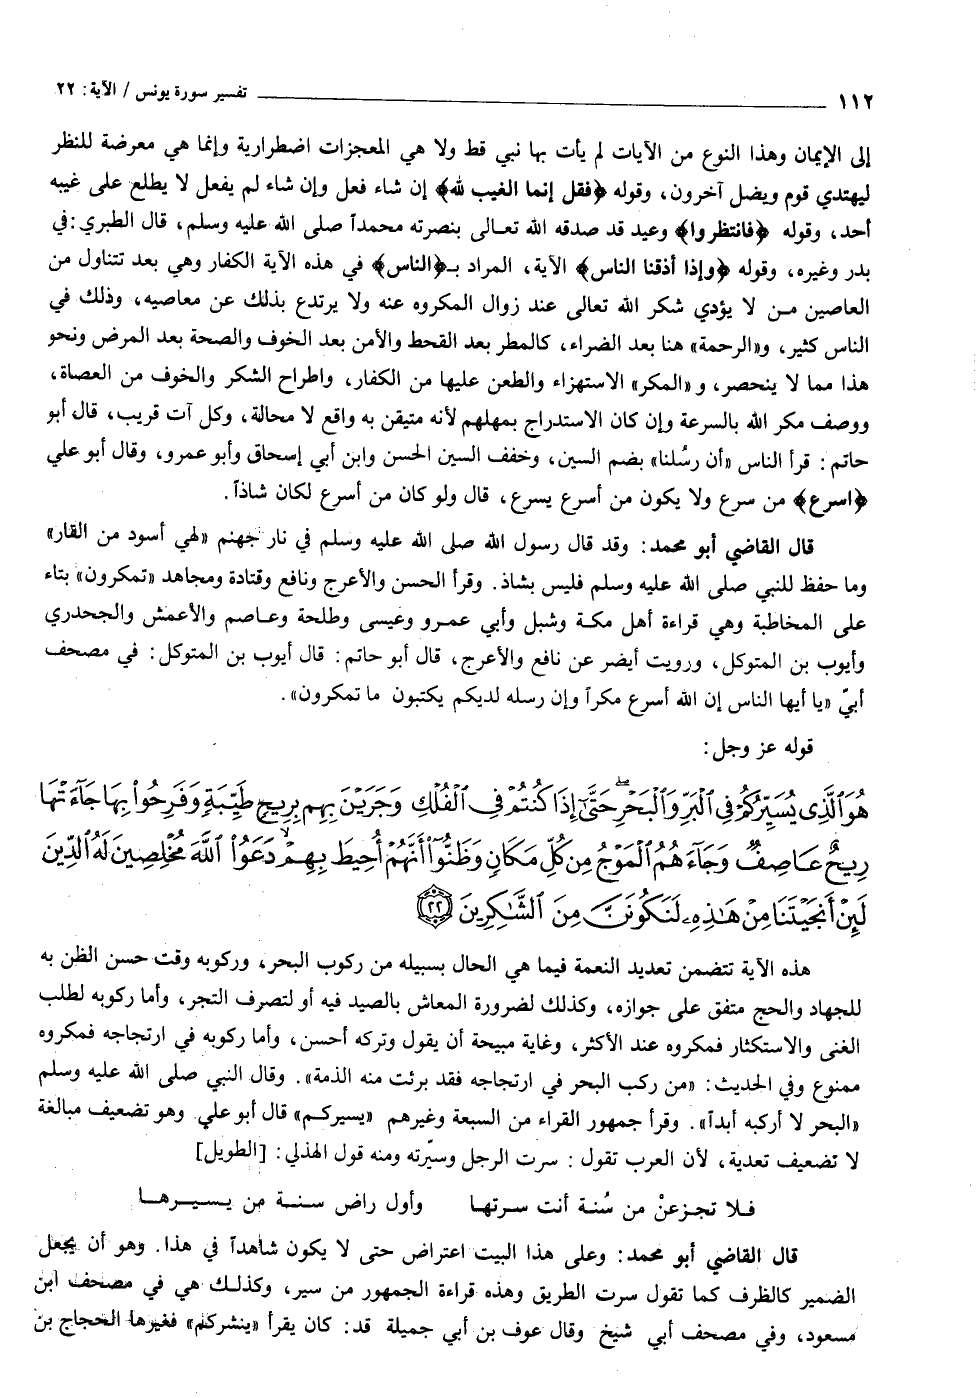 ١١٢ ــــــــ تفسير سورة يونس / الآية: ٢٢
إلى الإيمان وهذا النوع من الآيات لم يأت بها نبي قط ولا هي المعجزات اضطرارية وإنما هي معرضة للنظر
ليهتدي قوم ويضل آخرون، وقوله ﴿فقل إنما الغيب لله﴾ إن شاء فعل وإن شاء لم يفعل لا يطلع على غيبه
أحد، وقوله ﴿فانتظروا﴾ وعيد قد صدقه الله تعالى بنصرته محمداً صلى الله عليه وسلم، قال الطبري: في
بدر وغيره، وقوله ﴿وإذا أذقنا الناس﴾ الآية، المراد بـ﴿الناس﴾ في هذه الآية الكفار وهي بعد تتناول من
العاصين من لا يؤدي شكر الله تعالى عند زوال المكروه عنه ولا يرتدع بذلك عن معاصيه، وذلك في
الناس كثير، و«الرحمة» هنا بعد الضراء، كالمطر بعد القحط والأمن بعد الخوف والصحة بعد المرض ونحو
هذا مما لا ينحصر، و «المكر» الاستهزاء والطعن عليها من الكفار، واطراح الشكر والخوف من العصاة،
ووصف مكر الله بالسرعة وإن كان الاستدراج بمهلهم لأنه متيقن به واقع لا محالة، وكل آت قريب، قال أبو
حاتم: قرأ الناس «أن رسُلنا» بضم السين، وخفف السين الحسن وابن أبي إسحاق وأبو عمرو، وقال أبو علي
﴿اسرع﴾ من سرع ولا يكون من أسرع يسرع، قال ولو كان من أسرع لكان شاذاً.
قال القاضي أبو محمد: وقد قال رسول الله صلى الله عليه وسلم في نار جهنم «لهي أسود من القار»
وما حفظ للنبي صلى الله عليه وسلم فليس بشاذ. وقرأ الحسن والأعرج ونافع وقتادة ومجاهد «تمكرون» بتاء
على المخاطبة وهي قراءة أهل مكة وشبل وأبي عمرو وعيسى وطلحة وعاصم والأعمش والجحدري
وأيوب بن المتوكل، ورويت أيضر عن نافع والأعرج، قال أبو حاتم: قال أيوب بن المتوكل: في مصحف
أبيّ «يا أيها الناس إن الله أسرع مكراً وإن رسله لديكم يكتبون ما تمكرون».
قوله عز وجل:
هُوَ ٱلَّذِى يُسَيِّرُكُمْ فِى ٱلْبَرِّ وَٱلْبَحْرِ حَتَّىٰٓ إِذَا كُنتُمْ فِى ٱلْفُلْكِ وَجَرَيْنَ بِهِم بِرِيحٍ طَيِّبَةٍ وَفَرِحُوا۟ بِهَا جَآءَتْهَا
رِيحٌ عَاصِفٌ وَجَآءَهُمُ ٱلْمَوْجُ مِن كُلِّ مَكَانٍ وَظَنُّوٓا۟ أَنَّهُمْ أُحِيطَ بِهِمْ دَعَوُا۟ ٱللَّهَ مُخْلِصِينَ لَهُ ٱلدِّينَ
لَئِنْ أَنجَيْتَنَا مِنْ هَـٰذِهِۦ لَنَكُونَنَّ مِنَ ٱلشَّـٰكِرِينَ ٢٢
هذه الآية تتضمن تعديد النعمة فيما هي الحال بسبيله من ركوب البحر، وركوبه وقت حسن الظن به
للجهاد والحج متفق على جوازه، وكذلك لضرورة المعاش بالصيد فيه أو لتصرف التجر، وأما ركوبه لطلب
الغنى والاستكثار فمكروه عند الأكثر، وغاية مبيحة أن يقول وتركه أحسن، وأما ركوبه في ارتجاجه فمكروه
ممنوع وفي الحديث: «من ركب البحر في ارتجاجه فقد برئت منه الذمة». وقال النبي صلى الله عليه وسلم
«البحر لا أركبه أبداً». وقرأ جمهور القراء من السبعة وغيرهم «يسيركم» قال أبو علي وهو تضعيف مبالغة
لا تضعيف تعدية، لأن العرب تقول: سرت الرجل وسيّرته ومنه قول الهذلي: [الطويل]
فلا تجزعنْ من سُنة أنت سرتها    وأول راض سنة من يسيرها
قال القاضي أبو محمد: وعلى هذا البيت اعتراض حتى لا يكون شاهداً في هذا. وهو أن يجعل
الضمير كالظرف كما تقول سرت الطريق وهذه قراءة الجمهور من سير، وكذلك هي في مصحف ابن
مسعود، وفي مصحف أبي شيخ وقال عوف بن أبي جميلة قد: كان يقرأ «ينشركم» فغيرها الحجاج بن